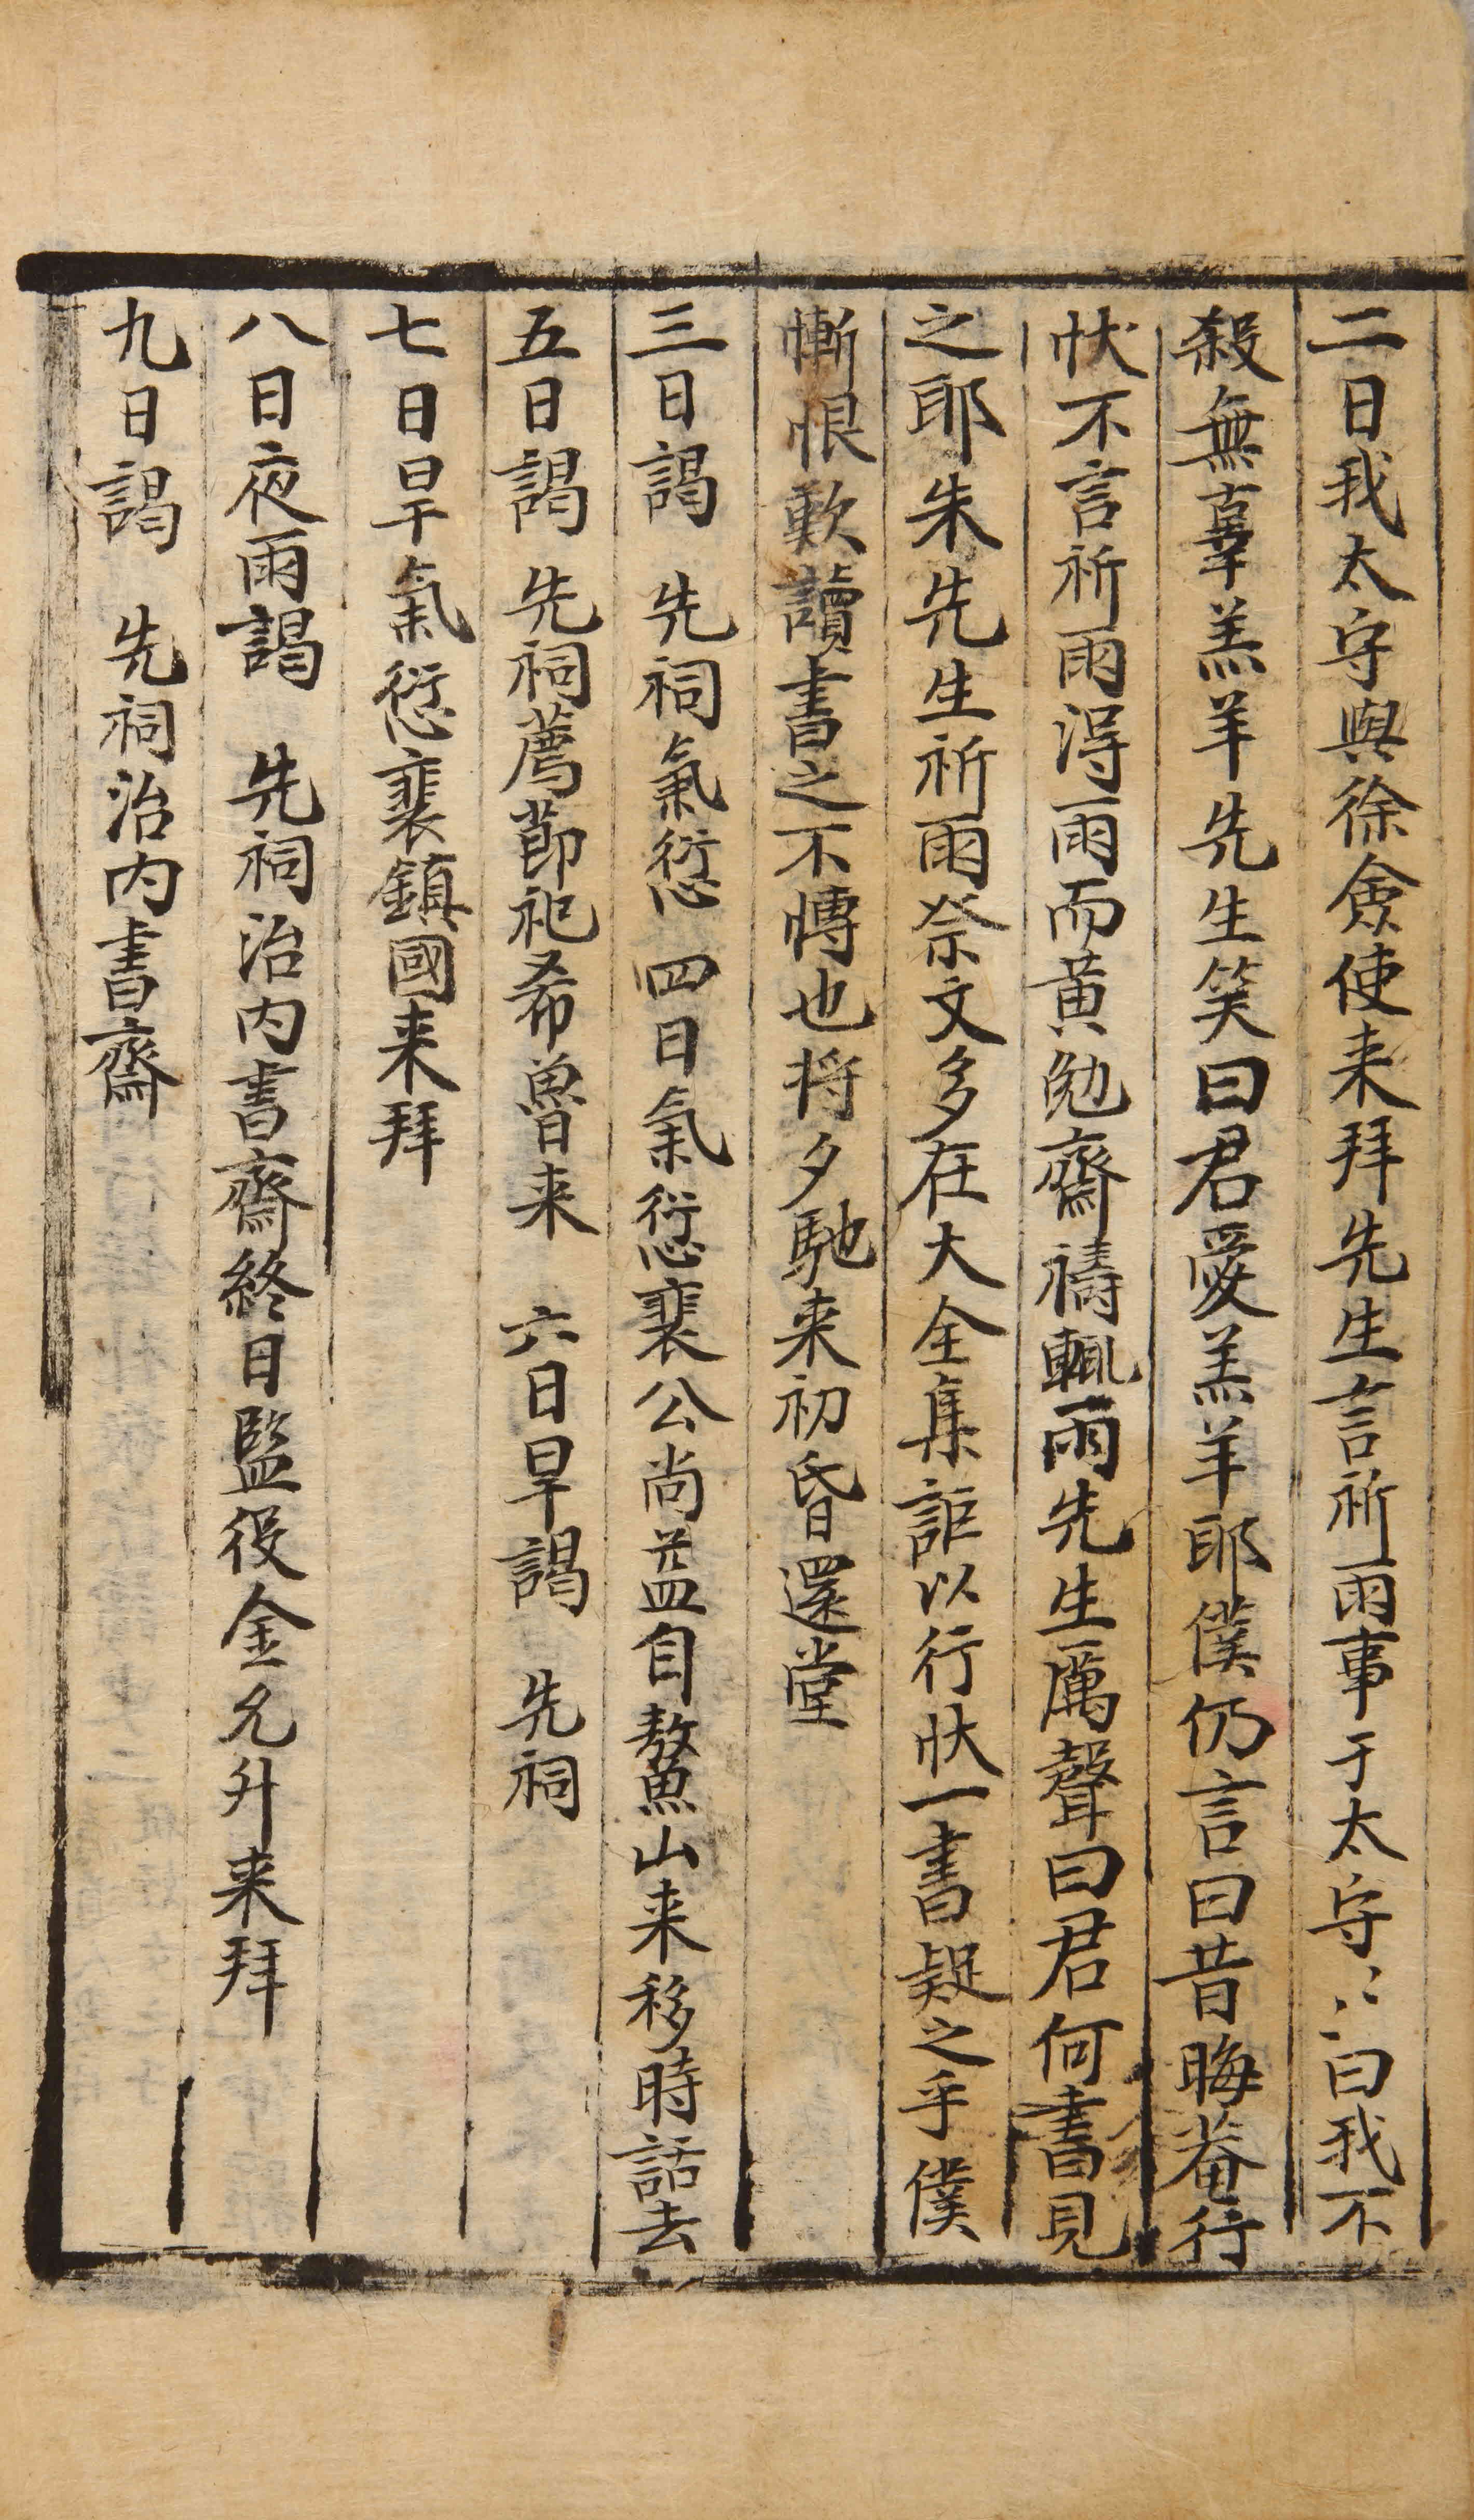 二日我太守與徐僉使来拜先生言祈雨事于太守〻曰我不
殺無辜羔羊先生笑曰君愛羔羊耶僕仍言曰昔晦菴行
狀不言祈雨淂雨而黄勉齋禱輒雨先生厲聲曰君何書見
之耶朱先生祈雨祭文多在大全集詎以行狀一書疑之乎僕
慚恨歎讀書之不博也将夕馳来初昏還堂
三日謁 先祠氣愆 四日氣愆裴公尚益自鰲山来移時話去
五日謁 先祠薦節祀希魯来 六日早謁 先祠
七日早氣愆裴鎮國来拜
八日夜雨謁 先祠治内書齋終日監役金允升来拜
九日謁 先祠治内書齋